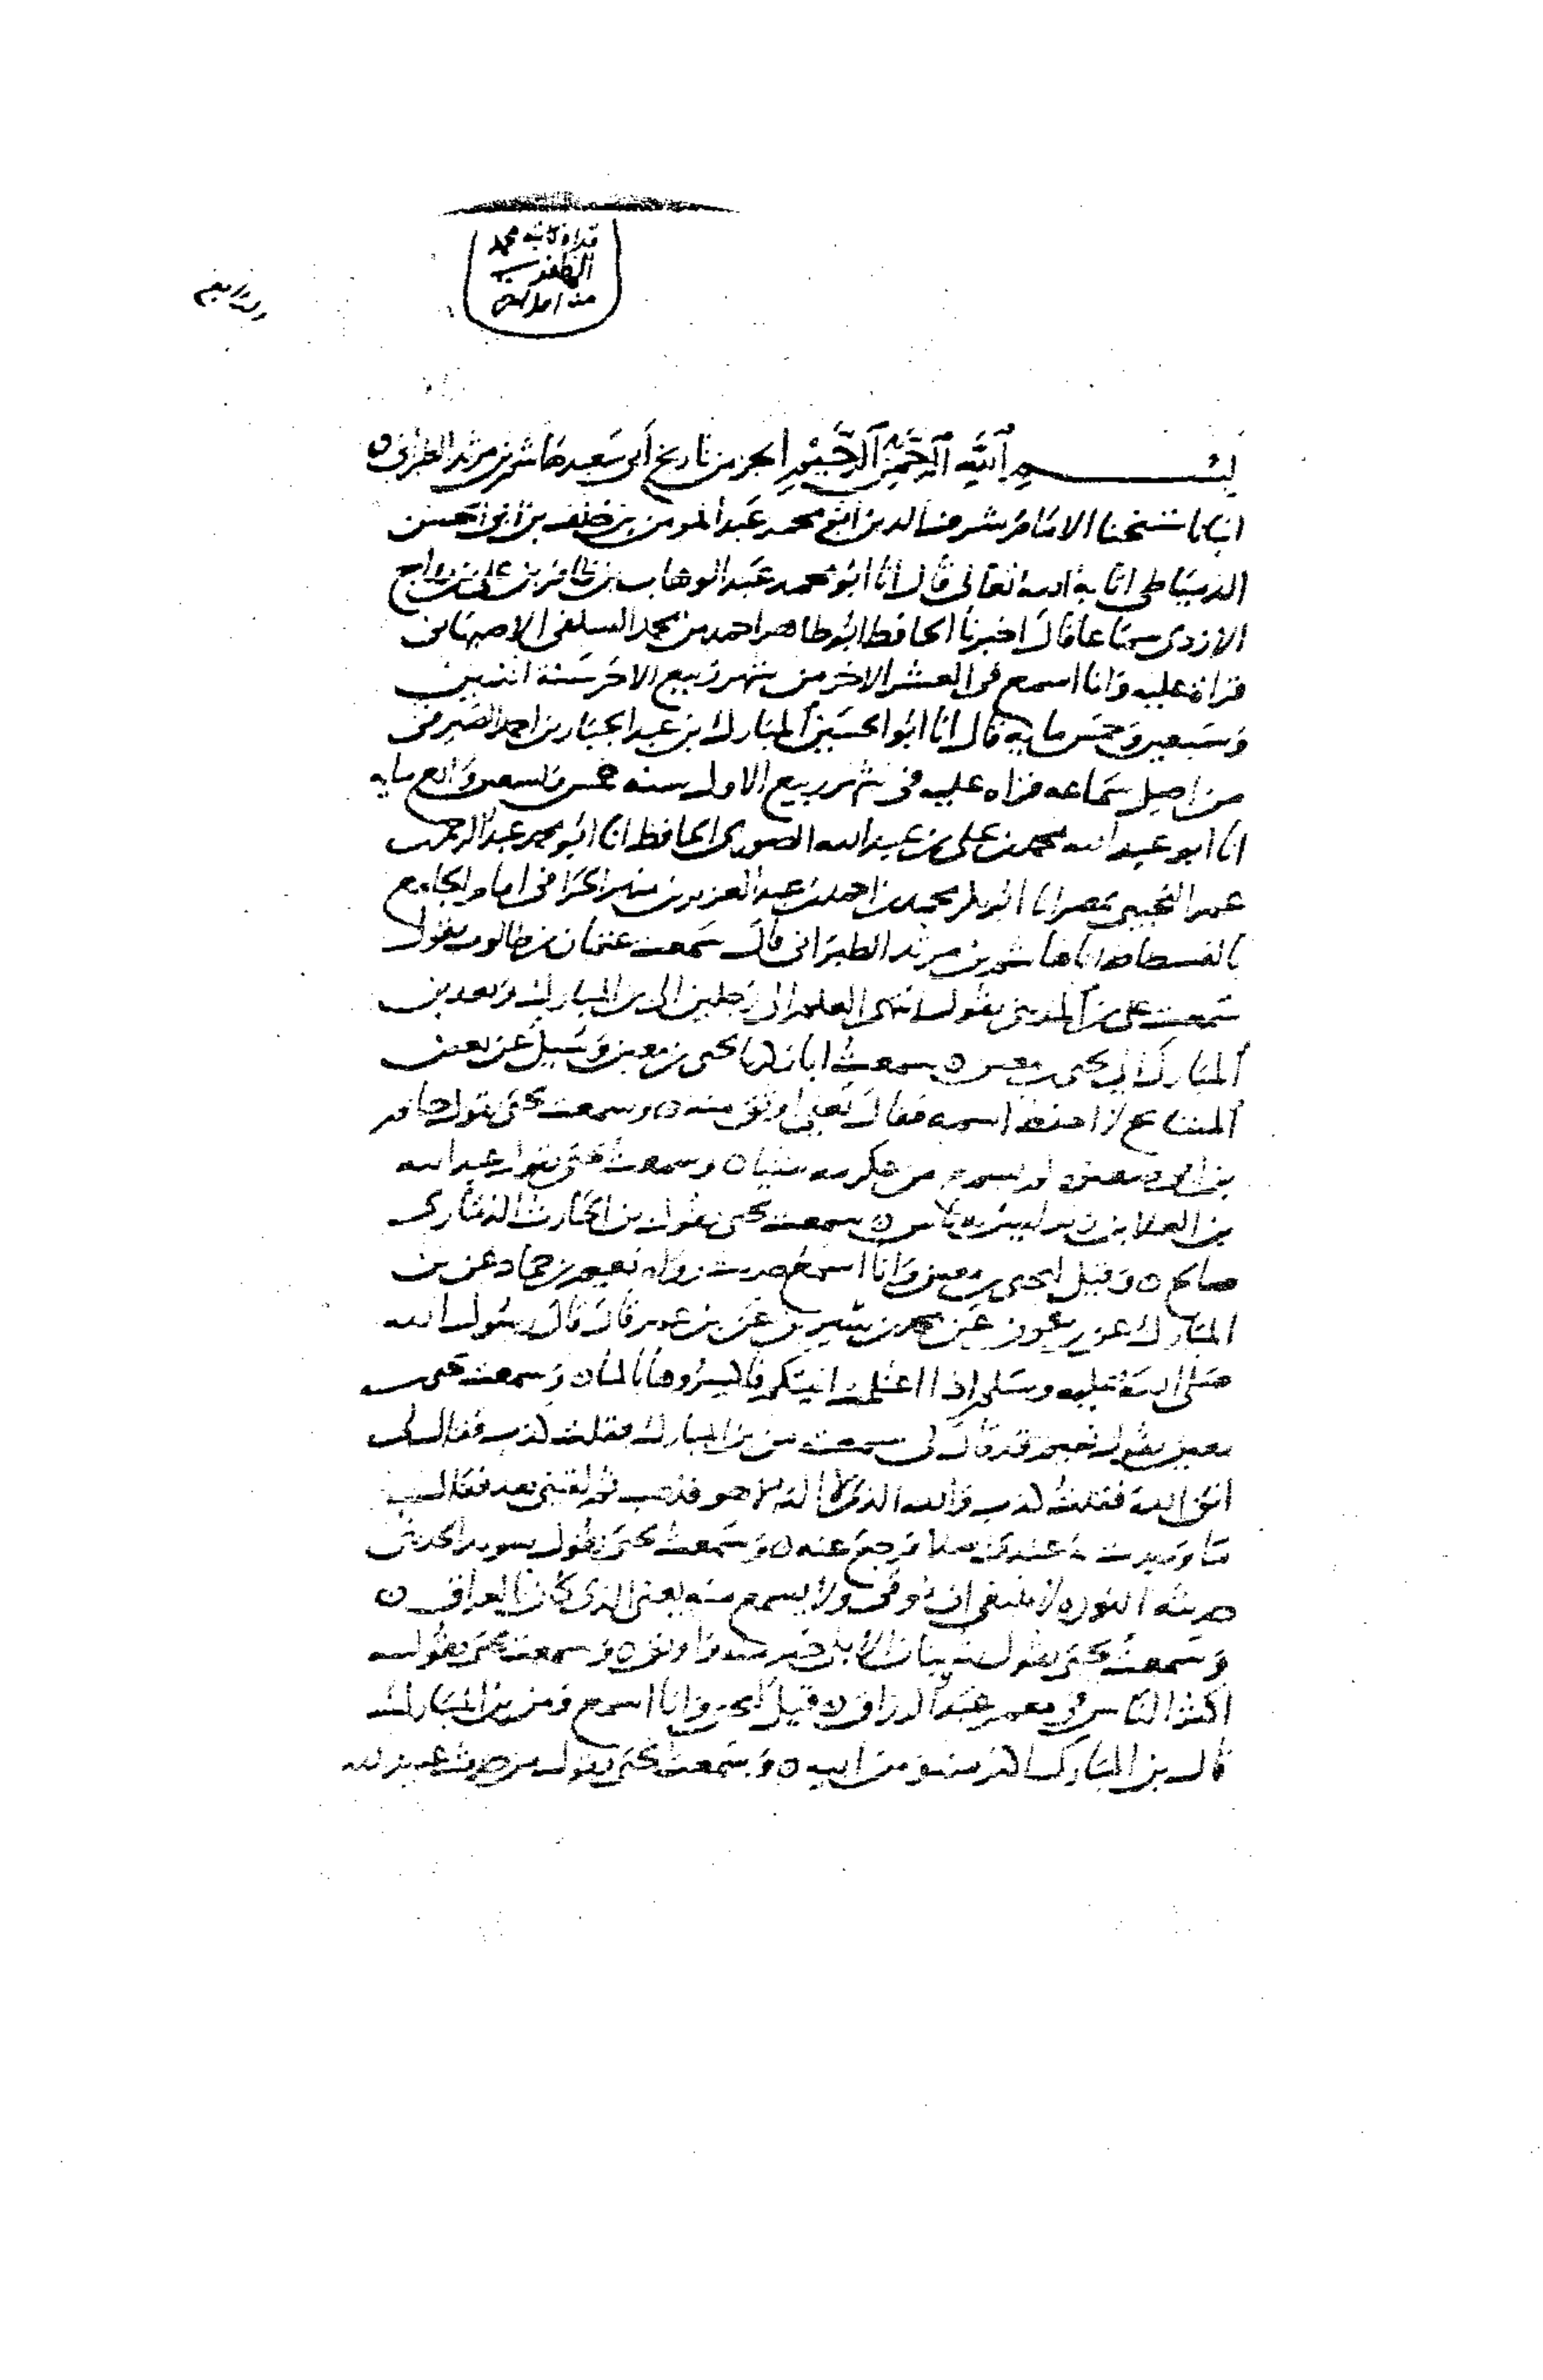 بسم الله الرحمن الرحيم الجز من تاريخ أبي سعيد هاشم بن مرثد الطبراني
انبانا شيخنا الامام شرف الدين ابو محمد عبد المومن بن خلف بن ابي الحسن
الدمياطي اثابه الله تعالى قال انا ابو محمد عبد الوهاب بن ظافر بن علي بن رواج
الازدي سماعا قال اخبرنا الحافظ ابو طاهر احمد بن محمد السلفي الاصبهاني
قراة عليه وانا اسمع في العشر الاخر من شهر ربيع الاخر سنة اثنتين
وسبعين وخمس مايه قال انا ابو الحسين المبارك بن عبد الجبار بن احمد الصيرفي
من اصل سماعه قراه عليه في شهر ربيع الاول سنه خمس وتسعين واربع مايه
انا ابو عبد الله محمد بن علي بن عبد الله الصوري الحافظ انا ابو محمد عبد الرحمن
عمر التجيبي بمصر انا ابو بكر محمد بن احمد بن عبد العزيز بن الحراني امام الجامع
بالفسطاط انا هاشم بن مرثد الطبراني قال سمعت عثمان بن طالوت يقول
سمعت علي بن المديني يقول انتهى العلم الى رجلين الى بن المبارك وبعد بن
المبارك الى يحيى بن معين سمعت ابا زكريا يحيى بن معين وسيل عن بعض
المشايخ لا احفظ اسمه فقال تعلبي اوثق منه وسمعت يحيى يقول
بن لم يسمع من عكرمه شيا وسمعت يحيى يقول عبد الله
بن العلا بن زبر ليس به باس سمعت يحيى يقول بن الحارث الذماري
صالح وقيل ليحيى بن معين وانا اسمع حديث رواه نعيم بن حماد عن بن
المبارك عن بن عون عن محمد بن سيرين عن بن عمر قال قال رسول الله
صلى الله عليه وسلم اذا اغتلمت انيتكم فاكسروها بالماء وسمعت يحيى بن
معين يقول نعيم قد قال لي سمعته من بن المبارك فقلت كذب فقال لي
اتق الله فقلت كذب والله الذي لا اله الا هو فذهب ثم لقيني بعد فقال
ما وجدت له عندي اصلا فرجع عنه وسمعت يحيى يقول سويد الحدثي
حديثه النوره لا ينبغي ان ولا يسمع منه يعني الذي كان بالعراق
وسمعت يحيى يقول شيبان الابلي خير منه واوثق وسمعت يحيى يقول
اكثر الناس في معمر عبد الرزاق قيل ليحيى وانا اسمع ومن بن المبارك
قال بن المبارك اكثر منه ومن ابيه وسمعت يحيى يقول من حديث عبيد الله